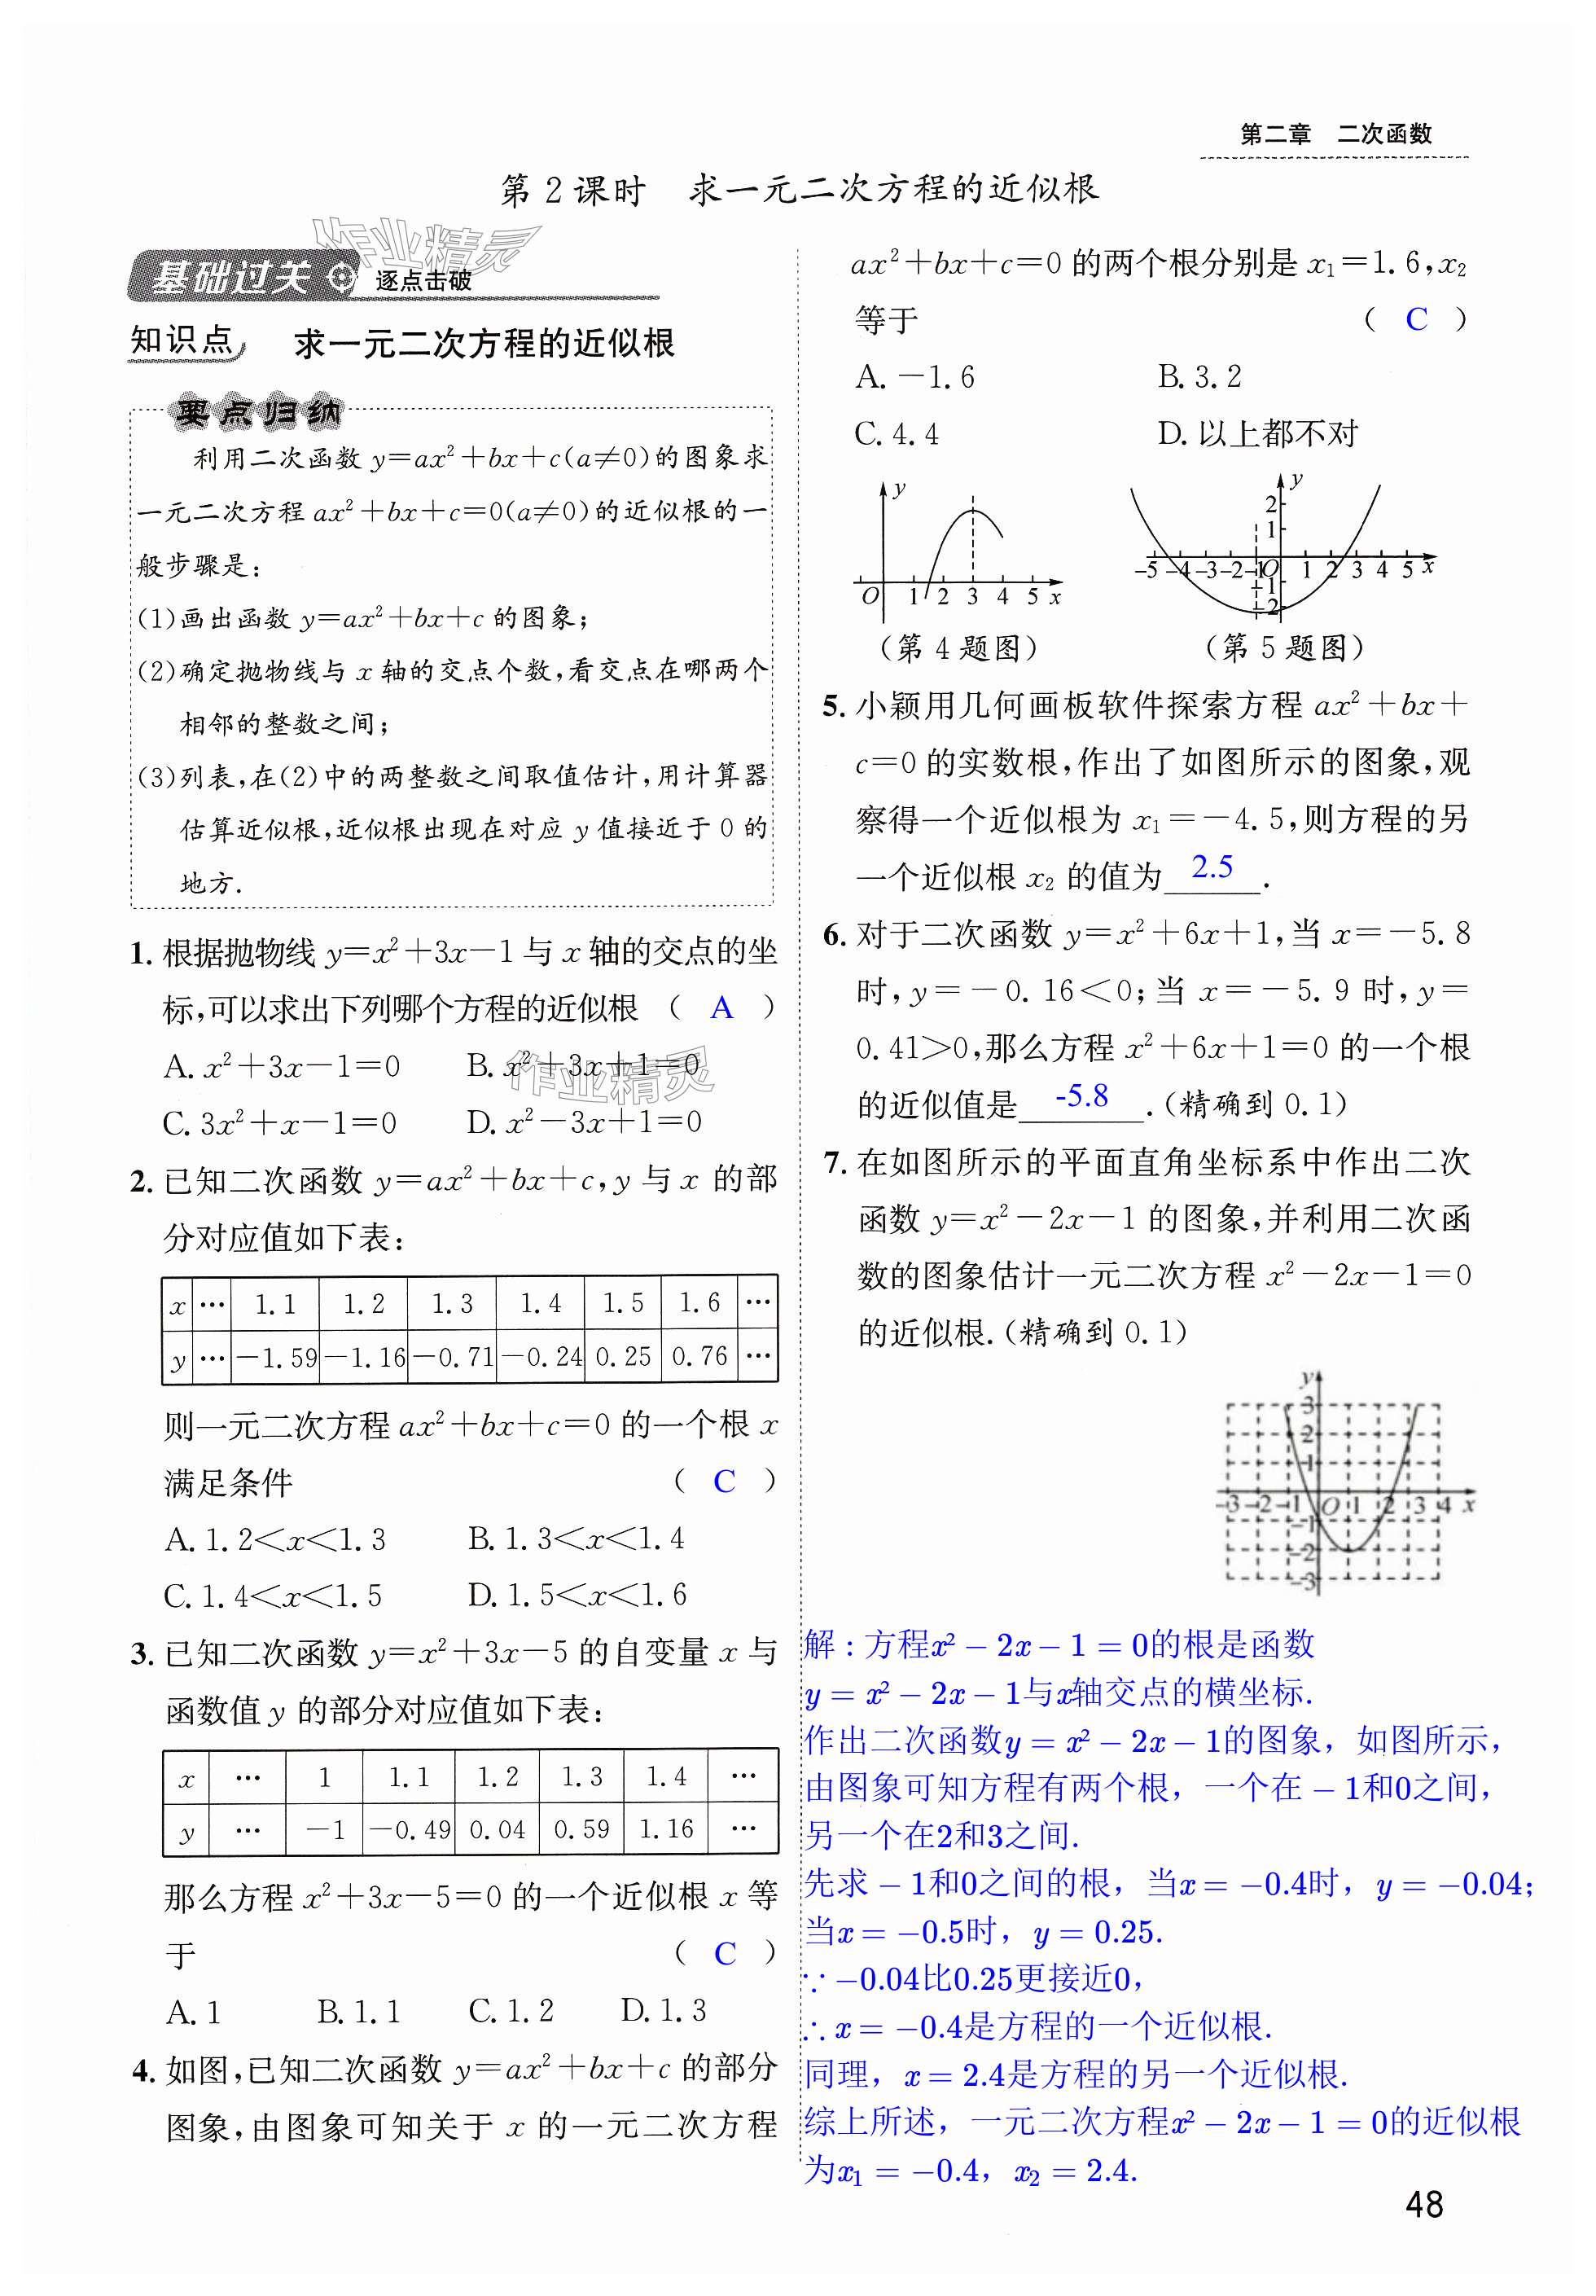 第二章　二次函数
第 2 课时　求一元二次方程的近似根
作业精灵
基础过关 逐点击破
知识点　求一元二次方程的近似根
要点归纳
利用二次函数 y=ax²+bx+c(a≠0)的图象求
一元二次方程 ax²+bx+c=0(a≠0)的近似根的一
般步骤是:
(1)画出函数 y=ax²+bx+c 的图象;
(2)确定抛物线与 x 轴的交点个数,看交点在哪两个
相邻的整数之间;
(3)列表,在(2)中的两整数之间取值估计,用计算器
估算近似根,近似根出现在对应 y 值接近于 0 的
地方.
1. 根据抛物线 y=x²+3x-1 与 x 轴的交点的坐
标,可以求出下列哪个方程的近似根 ( A )
A. x²+3x-1=0　B. x²+3x+1=0
作业精灵
C. 3x²+x-1=0　D. x²-3x+1=0
2. 已知二次函数 y=ax²+bx+c,y 与 x 的部
分对应值如下表:
x … 1.1 1.2 1.3 1.4 1.5 1.6 …
y … -1.59 -1.16 -0.71 -0.24 0.25 0.76 …
则一元二次方程 ax²+bx+c=0 的一个根 x
满足条件 ( C )
A. 1.2<x<1.3　B. 1.3<x<1.4
C. 1.4<x<1.5　D. 1.5<x<1.6
3. 已知二次函数 y=x²+3x-5 的自变量 x 与
函数值 y 的部分对应值如下表:
x … 1 1.1 1.2 1.3 1.4 …
y … -1 -0.49 0.04 0.59 1.16 …
那么方程 x²+3x-5=0 的一个近似根 x 等
于 ( C )
A. 1　B. 1.1　C. 1.2　D. 1.3
4. 如图,已知二次函数 y=ax²+bx+c 的部分
图象,由图象可知关于 x 的一元二次方程
ax²+bx+c=0 的两个根分别是 x₁=1.6,x₂
等于 ( C )
A. -1.6　B. 3.2
C. 4.4　D. 以上都不对
y
O 1 2 3 4 5 x
y
2
1
-5 -4 -3 -2 -1 O 1 2 3 4 5 x
-1
-2
(第 4 题图)　(第 5 题图)
5. 小颖用几何画板软件探索方程 ax²+bx+
c=0 的实数根,作出了如图所示的图象,观
察得一个近似根为 x₁=-4.5,则方程的另
一个近似根 x₂ 的值为 2.5 .
6. 对于二次函数 y=x²+6x+1,当 x=-5.8
时,y=-0.16<0;当 x=-5.9 时,y=
0.41>0,那么方程 x²+6x+1=0 的一个根
的近似值是 -5.8 .(精确到 0.1)
7. 在如图所示的平面直角坐标系中作出二次
函数 y=x²-2x-1 的图象,并利用二次函
数的图象估计一元二次方程 x²-2x-1=0
的近似根.(精确到 0.1)
y
3
2
1
-3 -2 -1 O 1 2 3 4 x
-1
-2
-3
解：方程x²-2x-1=0的根是函数
y=x²-2x-1与x轴交点的横坐标.
作出二次函数y=x²-2x-1的图象，如图所示，
由图象可知方程有两个根，一个在-1和0之间，
另一个在2和3之间.
先求-1和0之间的根，当x=-0.4时，y=-0.04；
当x=-0.5时，y=0.25.
∵-0.04比0.25更接近0，
∴x=-0.4是方程的一个近似根.
同理，x=2.4是方程的另一个近似根.
综上所述，一元二次方程x²-2x-1=0的近似根
为x₁=-0.4，x₂=2.4.
48